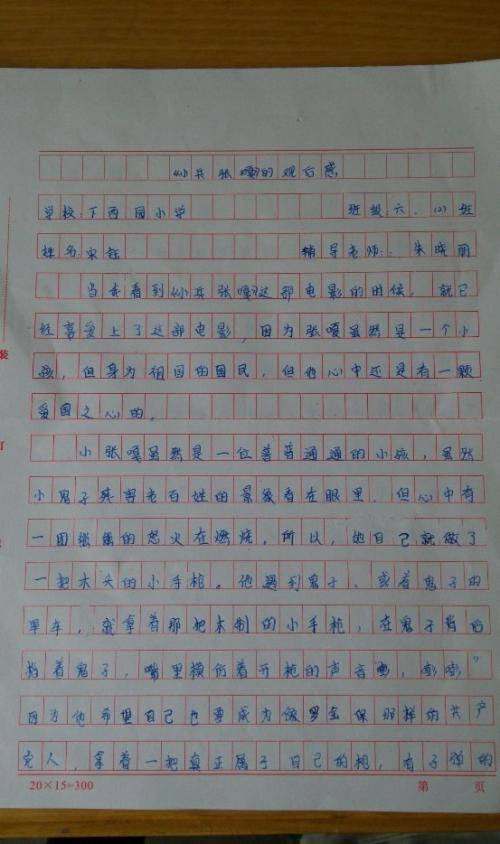 《小兵张嘎》的观后感
学校:下西园小学 班级六.(2)班
姓名:宋钰 辅导老师:朱晓丽
当我看到《小兵张嘎》这部电影的时候，就已
经喜爱上了这部电影，因为张嘎虽然是一个小
孩，但身为祖国的国民，但他心中还是有一颗
爱国之心的。
小张嘎虽然是一位普普通通的小孩，虽然
小鬼子残害老百姓的景象看在眼里，但心中有
一团熊熊的怒火在燃烧。所以，他自己就做了
一把木头的小手枪。他遇到鬼子，或着鬼子的
单车，就拿着那把木制的小手枪，在鬼子背后
指着鬼子，嘴里模仿着开枪的声音嘭，嘭嘭。
因为他希望自己也要成为像罗金保那样的共产
党人，拿着一把真正属于自己的枪，有子弹的
20×15=300 第 页
装
订